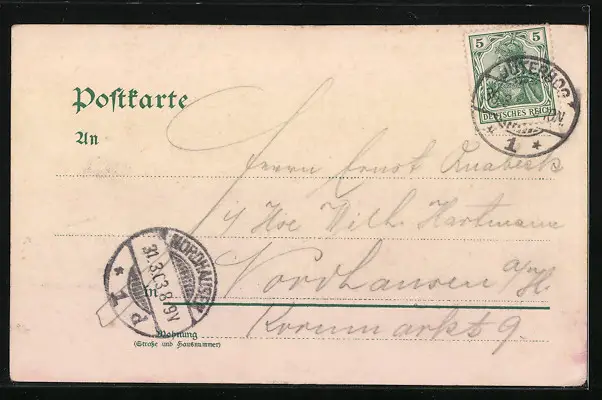 5 5
DEUTSCHES REICH
JÜTERBOG
1 *
Postkarte
An
Herrn Ernst Quabeck
Wilh. Hartmann
Nordhausen a/H.
in
Kornmarkt 9.
NORDHAUSEN
31.3.03.8/9V
* P 1
Wohnung
(Straße und Hausnummer)